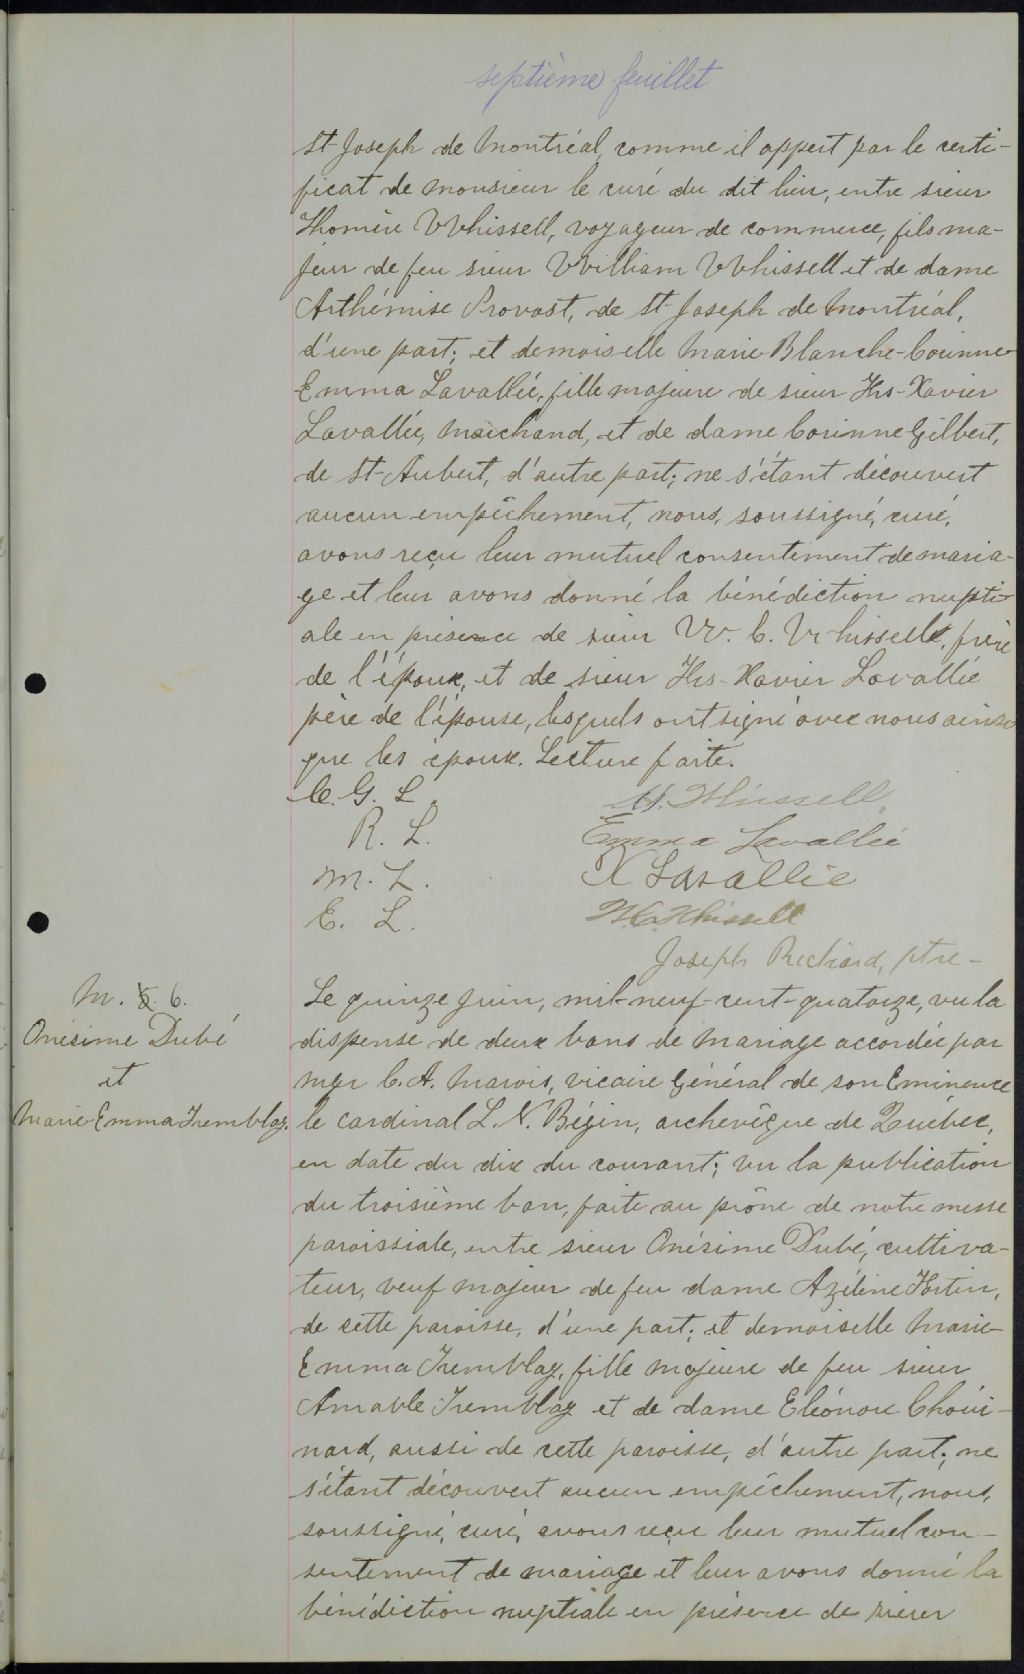 septième feuillet
St-Joseph de Montréal, comme il appert par le certi-
ficat de monsieur le curé du dit lieu, entre sieur
Thomère Whissell, voyageur de commerce, fils ma-
jeur de feu sieur William Whissell et de dame
Arthémise Provost, de St-Joseph de Montréal,
d'une part; et demoiselle Marie-Blanche-Corinne-
Emma Lavallée, fille majeure de sieur Frs-Xavier
Lavallée, marchand, et de dame Corinne Gilbert,
de St-Aubert, d'autre part; ne s'étant découvert
aucun empêchement, nous, soussigné, curé,
avons reçu leur mutuel consentement de maria-
ge et leur avons donné la bénédiction nupti-
ale en présence de sieur W. C. Whissell, frère
de l'époux, et de sieur Frs-Xavier Lavallée
père de l'épouse, lesquels ont signé avec nous ainsi
que les époux. Lecture faite.
C. G. L. H. Whissell
R. L. Emma Lavallée
M. L. X Lavallée
E. L. W.C. Whissell
Joseph Richard, ptre-
M. 6.
Onésime Dubé
et
Marie-Emma Tremblay.
Le quinze juin, mil-neuf-cent-quatorze, vu la
dispense de deux bans de mariage accordée par
Mgr C. A. Marois, vicaire Général de son Eminence
le cardinal L. N. Bégin, archevêque de Québec,
en date du dix du courant; vu la publication
du troisième ban, faite au prône de notre messe
paroissiale, entre sieur Onésime Dubé, cultiva-
teur, veuf majeur de feu dame Azéline Fortin,
de cette paroisse, d'une part; et demoiselle Marie-
Emma Tremblay, fille majeure de feu sieur
Amable Tremblay et de dame Eléonore Choui-
nard, aussi de cette paroisse, d'autre part; ne
s'étant découvert aucun empêchement, nous,
soussigné, curé, avons reçu leur mutuel con-
sentement de mariage et leur avons donné la
bénédiction nuptiale en présence de sieur